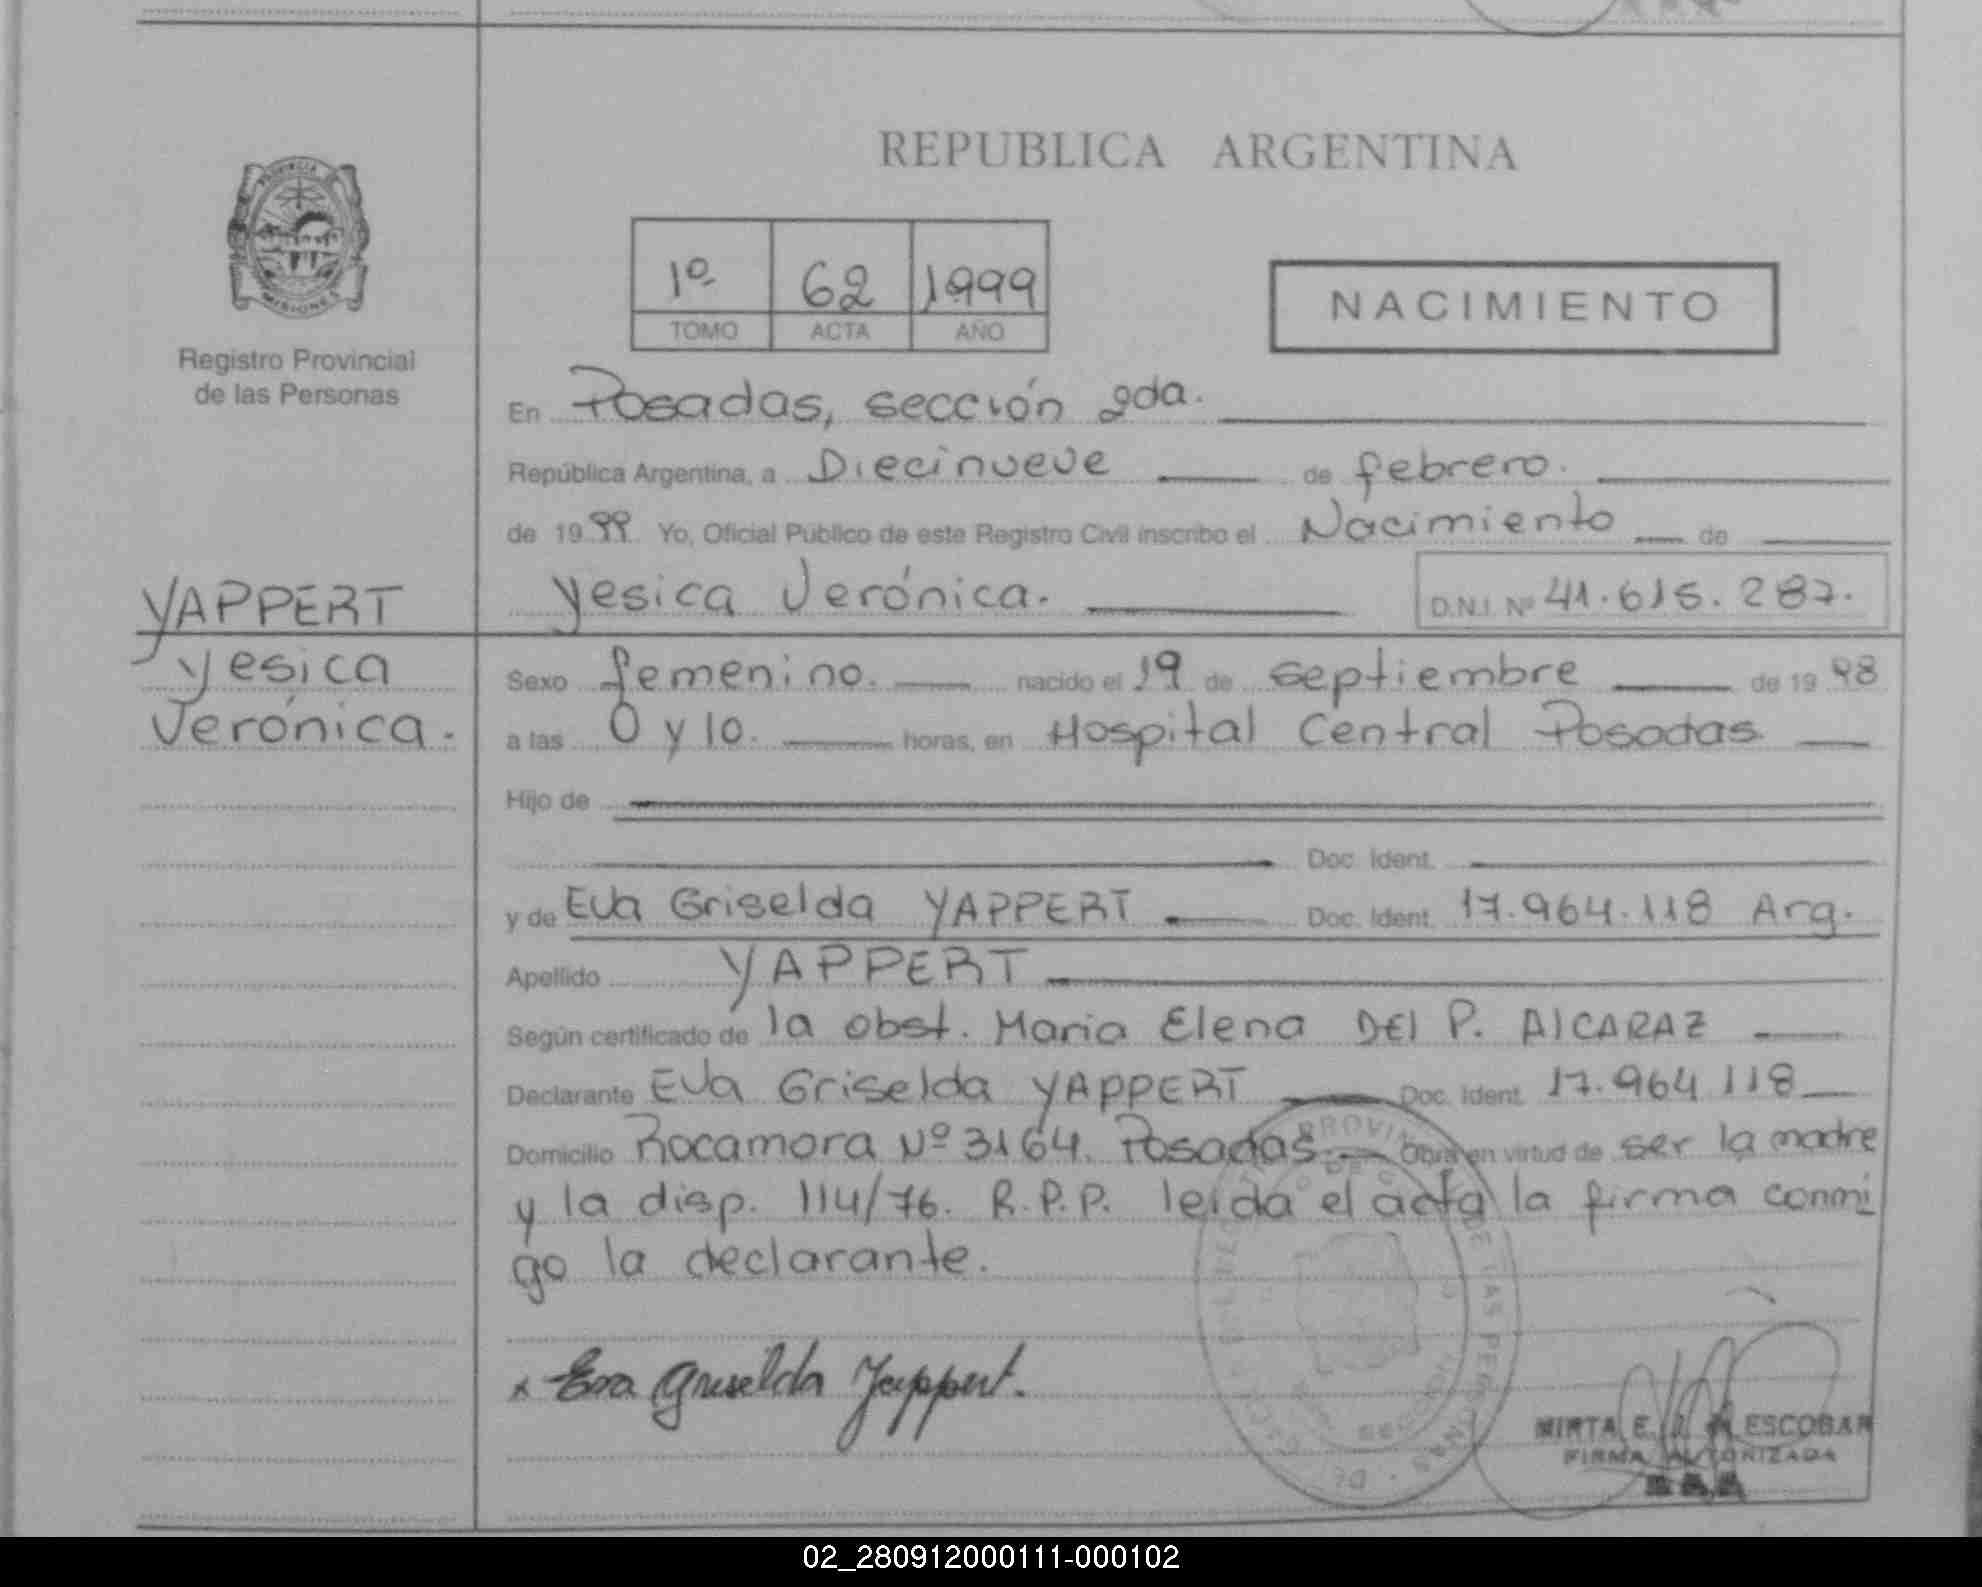 REPUBLICA ARGENTINA
PROVINCIA
MISIONES
Registro Provincial
de las Personas
1º 62 1999
TOMO ACTA AÑO
NACIMIENTO
En Posadas, sección 2da.
República Argentina, a Diecinueve de febrero.
de 1999 Yo, Oficial Público de este Registro Civil inscribo el Nacimiento de
YAPPERT
Yesica
Verónica.
Yesica Verónica. D.N.I. Nº 41.615.287.
Sexo femenino. nacido el 19 de septiembre de 1998
a las 0 y 10. horas, en Hospital Central Posadas.
Hijo de
Doc. Ident.
y de Eva Griselda YAPPERT Doc. Ident. 17.964.118 Arg.
Apellido YAPPERT
Según certificado de la obst. Maria Elena DEl P. AlCARAZ
Declarante Eva Griselda YAPPERT Doc. Ident. 17.964.118
Domicilio Rocamora Nº 3164. Posadas. Obra en virtud de ser la madre
y la disp. 114/76. R.P.P. leída el acta la firma conmi
go la declarante.
x Eva Griselda Yappert.
MIRTA E. ESCOBAR
FIRMA AUTORIZADA
02_280912000111-000102